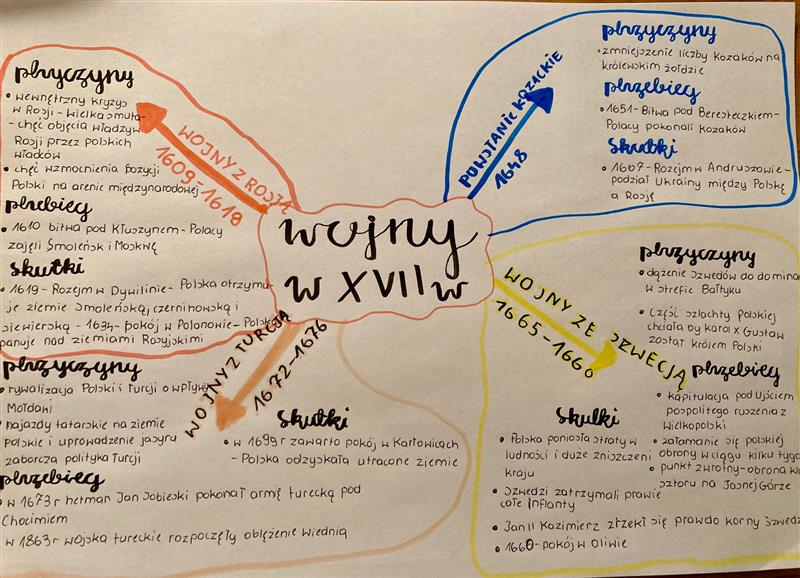 wojny
w XVII w
WOJNY Z ROSJĄ
1609-1618
przyczyny
• wewnętrzny kryzys
w Rosji - wielka smuta-
- chęć objęcia władzy w
Rosji przez polskich
władców
• chęć wzmocnienia pozycji
Polski na arenie międzynarodowej
przebieg
• 1610 bitwa pod Kłuszynem - Polacy
zajęli Smoleńsk i Moskwę
skutki
• 1619 - Rozejm w Dywilinie - Polska otrzymu-
je ziemie smoleńską, czernihowską i
siewierską - 1634 - pokój w Polanowie - Polska
panuje nad ziemiami Rosyjskimi
POWSTANIE KOZACKIE
1648
przyczyny
• zmniejszenie liczby Kozaków na
królewskim żołdzie
przebieg
• 1651 - Bitwa pod Beresteczkiem -
Polacy pokonali Kozaków
skutki
• 1667 - Rozejm w Andruszowie -
podział Ukrainy między Polskę
a Rosję
WOJNY ZE SZWECJĄ
1665-1660
przyczyny
• dążenie Szwedów do domina
w strefie Bałtyku
• Część szlachty polskiej
chciała by Karol X Gustaw
został królem Polski
przebieg
• kapitulacja pod Ujściem
pospolitego ruszenia z
Wielkopolski
• załamanie się polskiej
obrony w ciągu kilku tygo
• punkt zwrotny - obrona
sztoru na Jasnej Górze
skutki
• Polska poniosła straty w
ludności i duże zniszczeni
kraju
• Szwedzi zatrzymali prawie
całe Inflanty
• Jan II Kazimierz zrzekł się prawdo korny Szwedz
• 1660 - pokój w Oliwie
WOJNY Z TURCJĄ
1672-1676
przyczyny
• rywalizacja Polski i Turcji o wpływy
Mołdawi
• najazdy tatarskie na ziemie
polskie i uprowadzenie jasyru
zaborcza polityka Turcji
przebieg
• w 1673 r hetman Jan Sobieski pokonał armię turecką pod
Chocimiem
w 1863 r wojska tureckie rozpoczęły oblężenie wiednia
skutki
• w 1699 r zawarto pokój w Karłowicach
- Polska odzyskała utracone ziemie